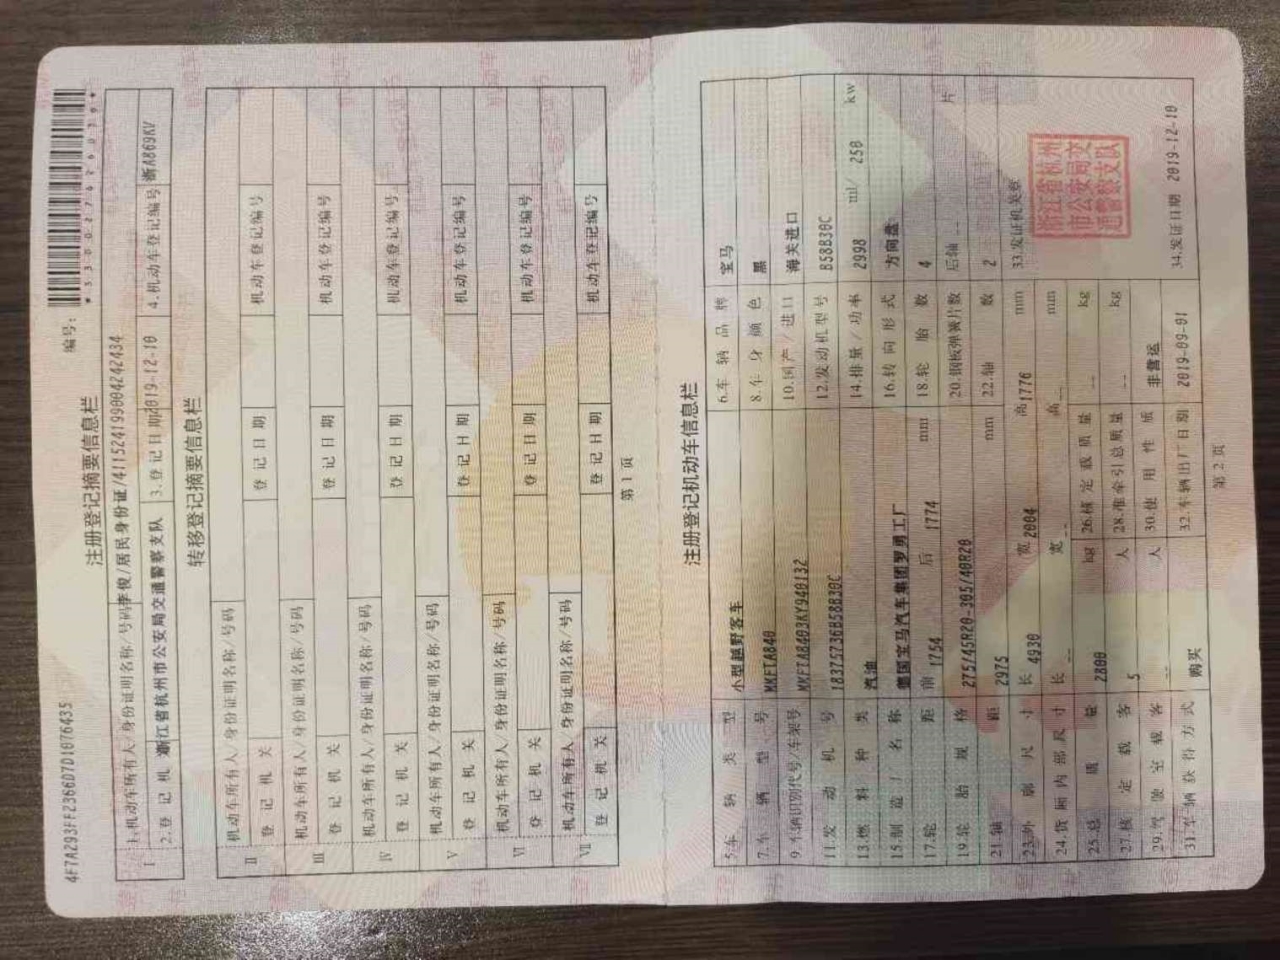 4F7A293FF2366D7D1076435
编号:
*330027426039*
注册登记摘要信息栏
Ⅰ 1.机动车所有人/身份证明名称/号码 李俊/居民身份证/411524199004242434
2.登记机关 浙江省杭州市公安局交通警察支队 3.登记日期 2019-12-10 4.机动车登记编号 浙A869KV
转移登记摘要信息栏
Ⅱ 机动车所有人/身份证明名称/号码
登记机关 登记日期 机动车登记编号
Ⅲ 机动车所有人/身份证明名称/号码
登记机关 登记日期 机动车登记编号
Ⅳ 机动车所有人/身份证明名称/号码
登记机关 登记日期 机动车登记编号
Ⅴ 机动车所有人/身份证明名称/号码
登记机关 登记日期 机动车登记编号
Ⅵ 机动车所有人/身份证明名称/号码
登记机关 登记日期 机动车登记编号
Ⅶ 机动车所有人/身份证明名称/号码
登记机关 登记日期 机动车登记编号
第1页
注册登记机动车信息栏
5.车辆类型 小型越野客车 6.车辆品牌 宝马
7.车辆型号 8.车身颜色 黑
9.车辆识别代号/车架号 10.国产/进口 海关进口
11.发动机号 18375736B58B30C 12.发动机型号 B58B30C
13.燃料种类 汽油 14.排量/功率 2998 ml/ 250 kw
15.制造厂名称 德国宝马汽车集团罗勇工厂 16.转向形式 方向盘
17.轮距 前 1754 后 1774 mm 18.轮胎数 4
19.轮胎规格 275/45R20-305/40R20 20.钢板弹簧片数 后轴 -- 片
21.轴距 2975 mm 22.轴数 2
23.外廓尺寸 长 4930 宽 2004 高 1776 mm
24.货厢内部尺寸 长 -- 宽 -- 高 -- mm
25.总质量 2800 kg 26.核定载质量 -- kg
27.核定载客 5 人 28.准牵引总质量 -- kg
29.驾驶室载客 -- 人 30.使用性质 非营运
31.车辆获得方式 购买 32.车辆出厂日期 2019-09-01
33.发证机关章
浙江省杭州
市公安局交
通警察支队
34.发证日期 2019-12-10
第2页